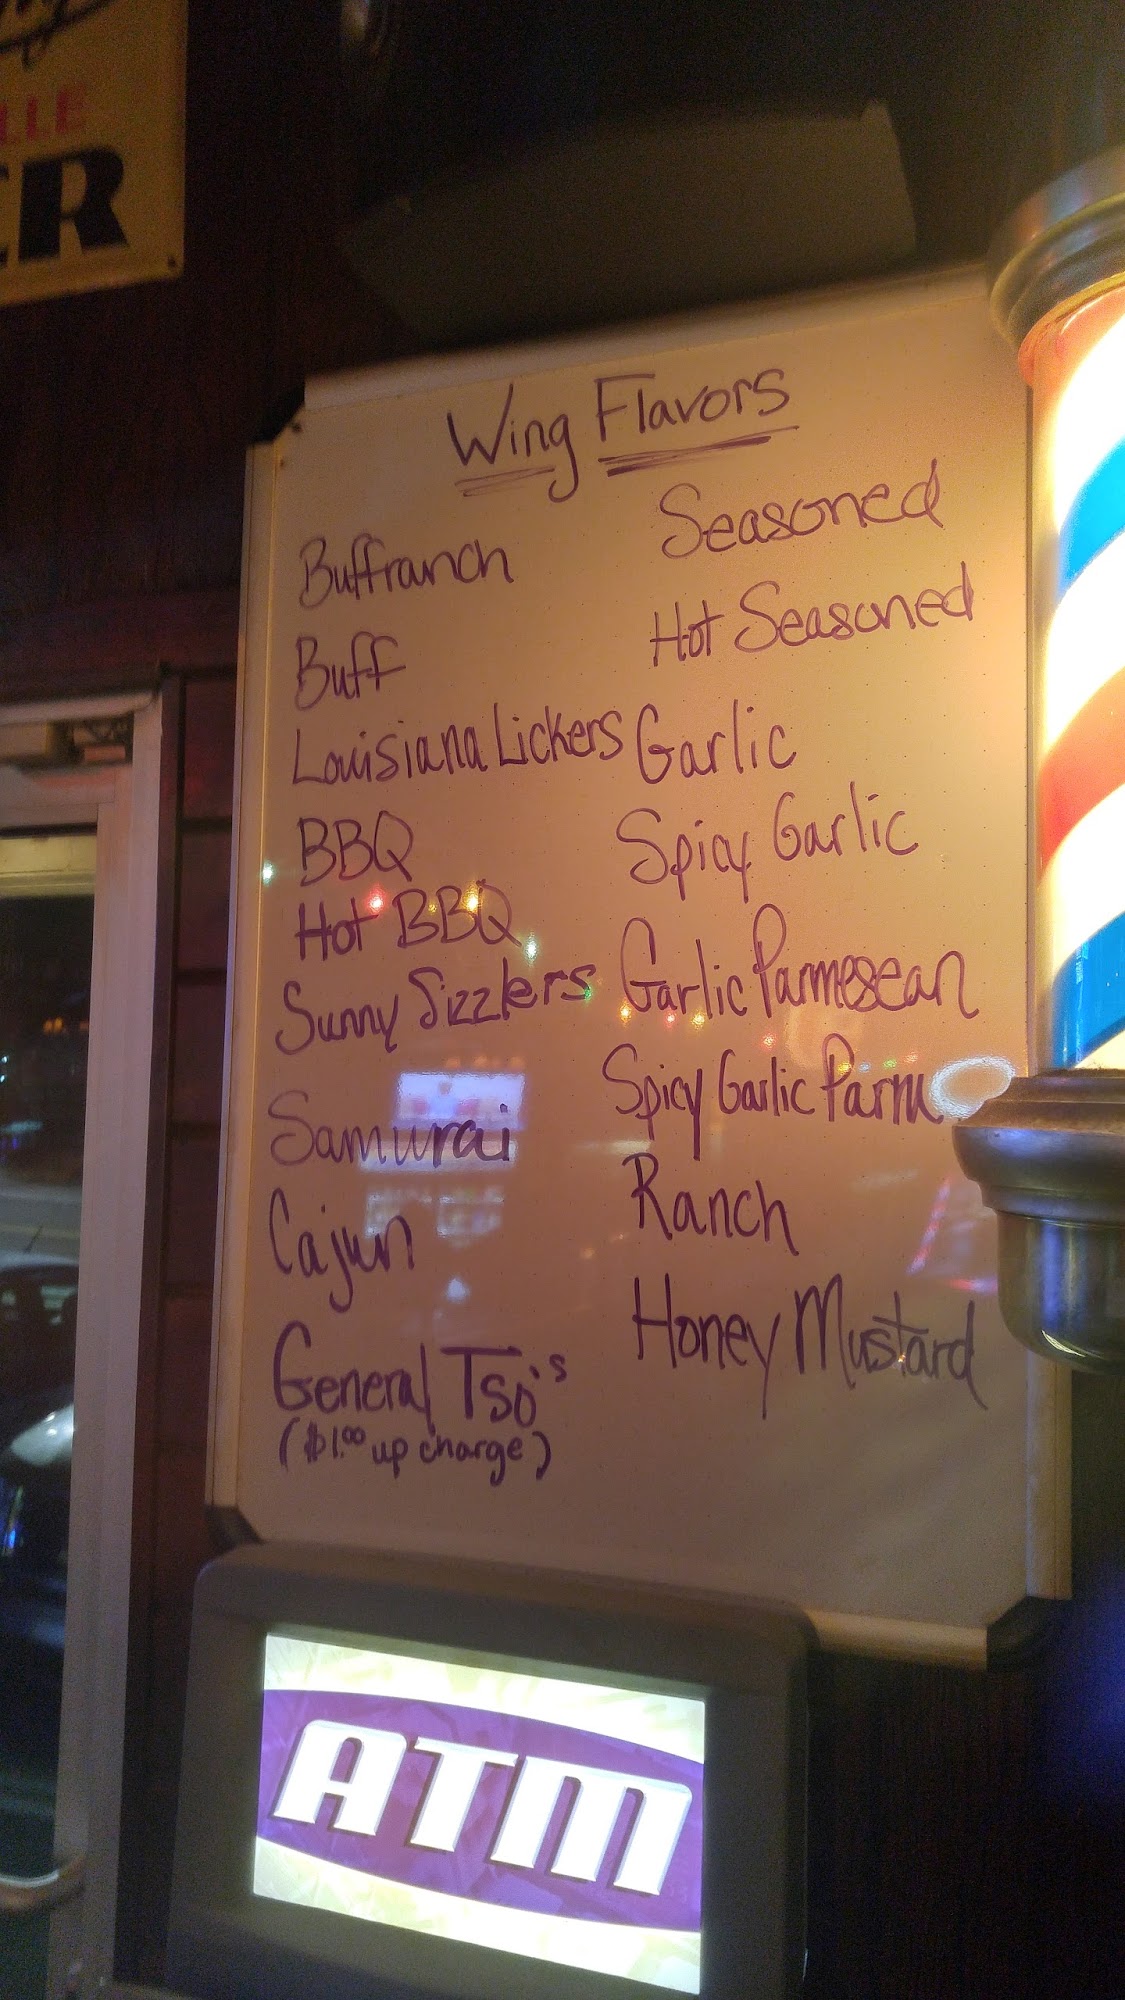 LLE
ER
Wing Flavors
Buffranch
Buff
Louisiana Lickers
BBQ
Hot BBQ
Sunny Sizzlers
Samurai
Cajun
General Tso's
($1.00 up charge)
Seasoned
Hot Seasoned
Garlic
Spicy Garlic
Garlic Parmesean
Spicy Garlic Parm
Ranch
Honey Mustard
ATM